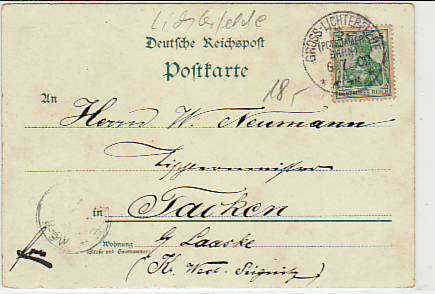 Lichterfelde
Deutsche Reichspost
Postkarte
18,-
GROSS-LICHTERFELDE
(POTSDAMER
BAHN)
An
Herrn W. Neumann
Tischlermeister
in Tacken
Wohnung
(Straße und Hausnummer)
b/ Laaske
(Kr. West-Prignitz)